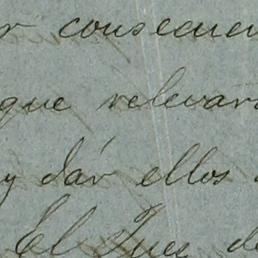 r consecuen
que relevar
y dár ellos
El Juez de